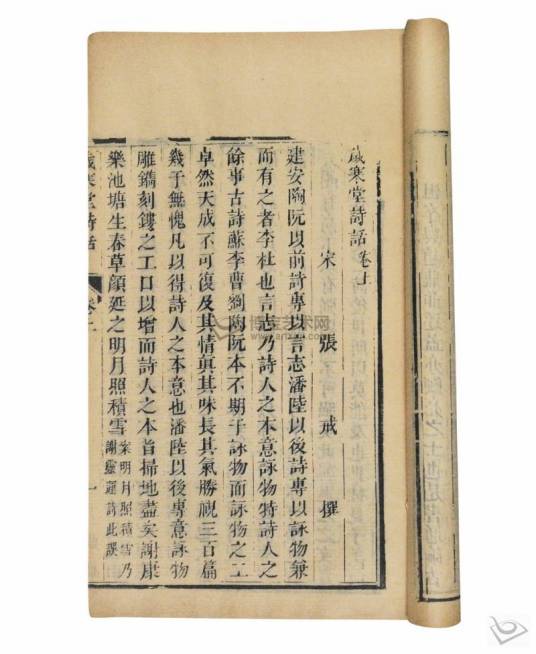 歲寒堂詩話卷上
宋 張戒 撰
建安陶阮以前詩專以言志潘陸以後詩專以詠物兼
而有之者李杜也言志乃詩人之本意詠物特詩人之
餘事古詩蘇李曹劉陶阮本不期于詠物而詠物之工
卓然天成不可復及其情眞其味長其氣勝視三百篇
幾于無愧凡以得詩人之本意也潘陸以後專意詠物
雕鐫刻鏤之工日以增而詩人之本旨掃地盡矣謝康
樂池塘生春草顏延之明月照積雪
案明月照積雪乃
謝靈運詩此誤
歲寒堂詩話
卷上
一